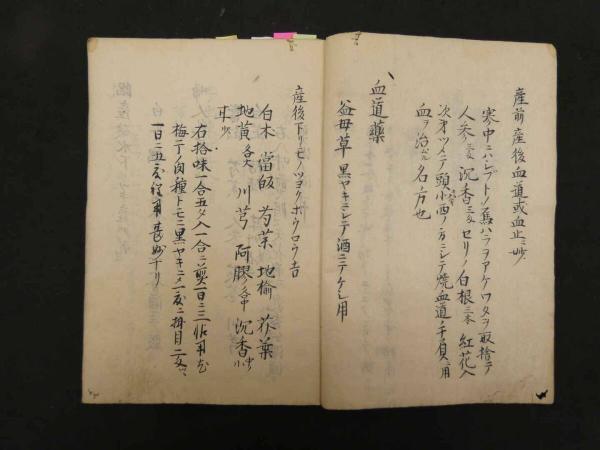 産前産後血道或血止ニ妙
寒中ニハシブトノ烏ハラヲアケワタヲ取捨テ
人参 沈香 セリノ白根三本 紅花入
次才ツヽミテ頭小西ノ方ニシテ焼血道ノ手負ニ用
血ヲ治ル名方也
血道薬
益母草黒ヤキニシテ酒ニテケシ用
産後下リモノツヨクボウロウ吉
白木 當皈 芍薬 地楡 芥葉
地黄 川芎 阿膠 沈香
右拾味一合五夕入一合ニ煎一日ニ三帖用
梅干ノ肉種トモニ黒ヤキニメ一度ニ掛目二文ツヽ
一日ニ五度程用甚妙ナリ